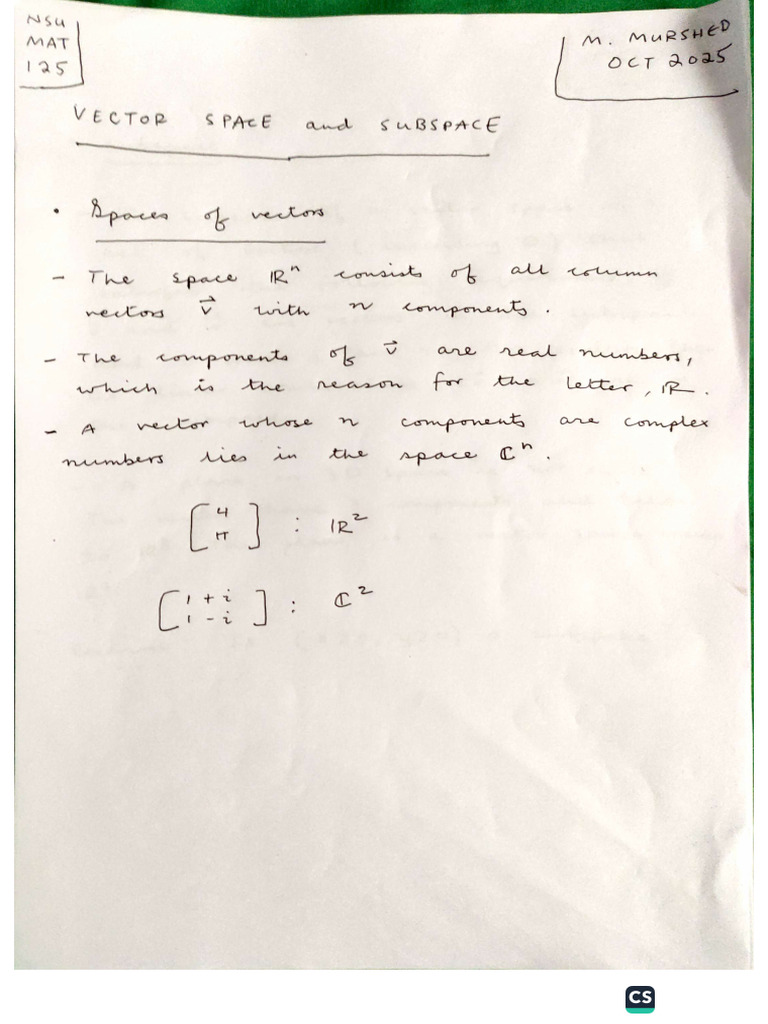 NSU
MAT
125
M. MURSHED
OCT 2025
VECTOR SPACE and SUBSPACE
• Spaces of vectors
- The space ℝⁿ consists of all column
vectors v⃗ with n components.
- The components of v⃗ are real numbers,
which is the reason for the letter, ℝ.
- A vector whose n components are complex
numbers lies in the space ℂⁿ.
[4
π] : ℝ²
[1 + i
1 - i] : ℂ²
CS